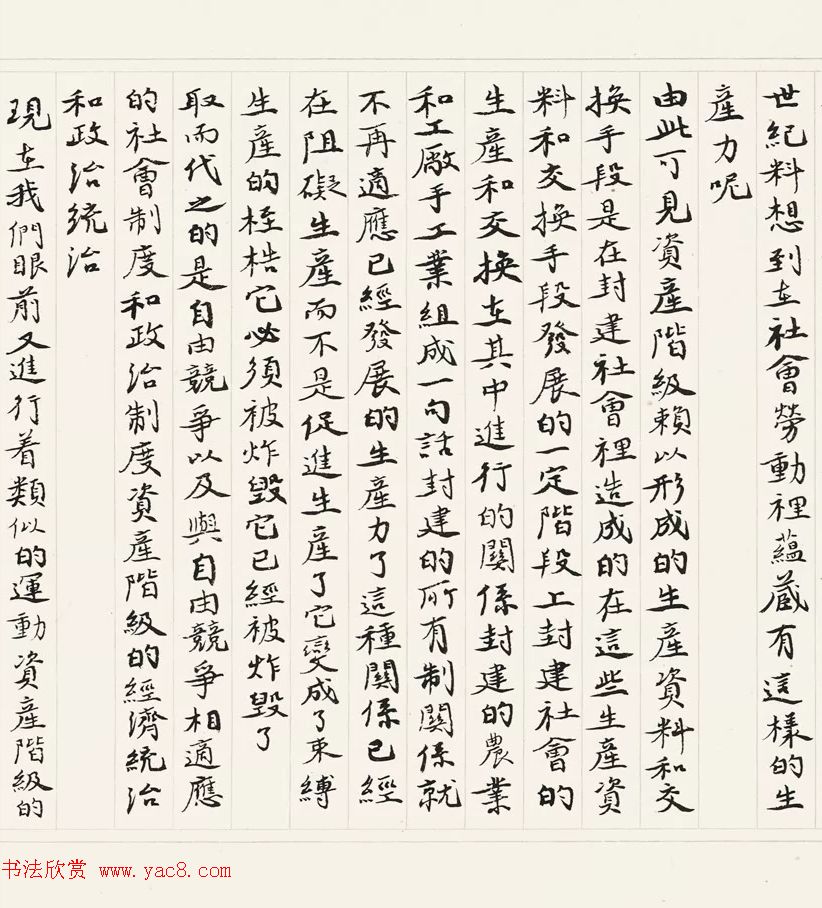 世紀料想到在社會勞動裡蘊蔵有這樣的生
產力呢
由此可見資產階級賴以形成的生產資料和交
換手段是在封建社會裡造成的在這些生產資
料和交換手段發展的一定階段上封建社會的
生產和交換在其中進行的關係封建的農業
和工廠手工業組成一句話封建的所有制關係就
不再適應已經發展的生產力了這種關係已經
在阻礙生產而不是促進生產了它變成了束縛
生產的桎梏它必須被炸毀它已經被炸毀了
取而代之的是自由競爭以及與自由競爭相適應
的社會制度和政治制度資產階級的經濟統治
和政治統治
現在我們眼前又進行着類似的運動資產階級的
书法欣赏 www.yac8.com